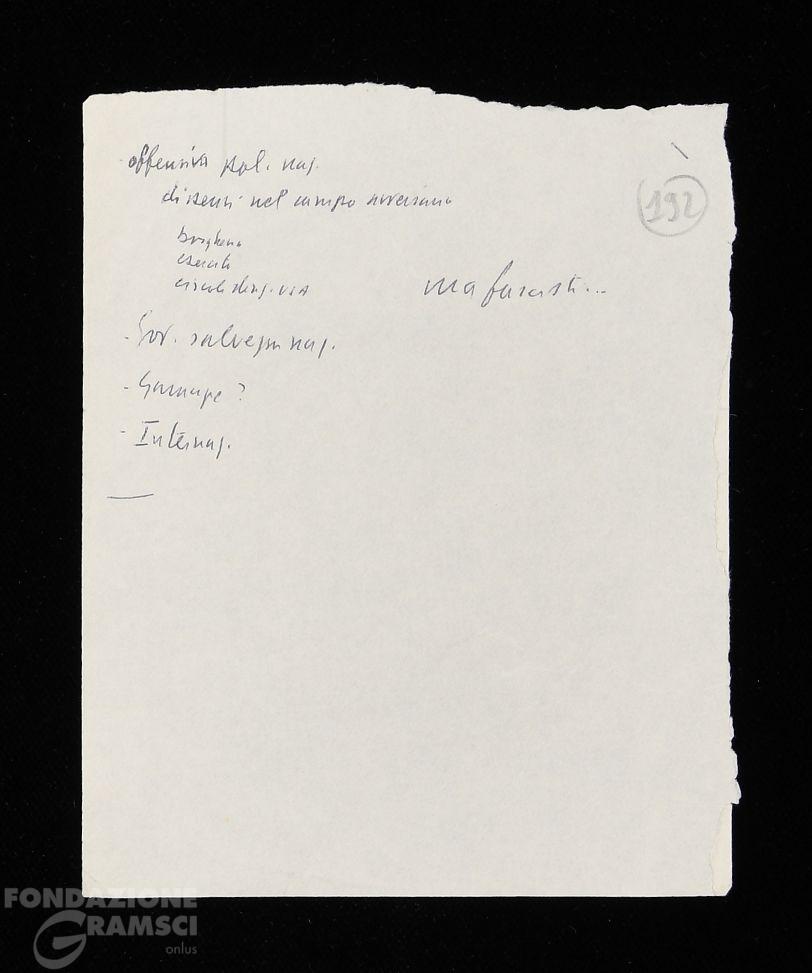 offensiva pol. naz.
192
dissensi nel campo avversario
borghesia
esercito
circoli dirig. USA
ma fascisti...
- Gov. salvezza naz.
- 
- Internaz.
FONDAZIONE
GRAMSCI
onlus